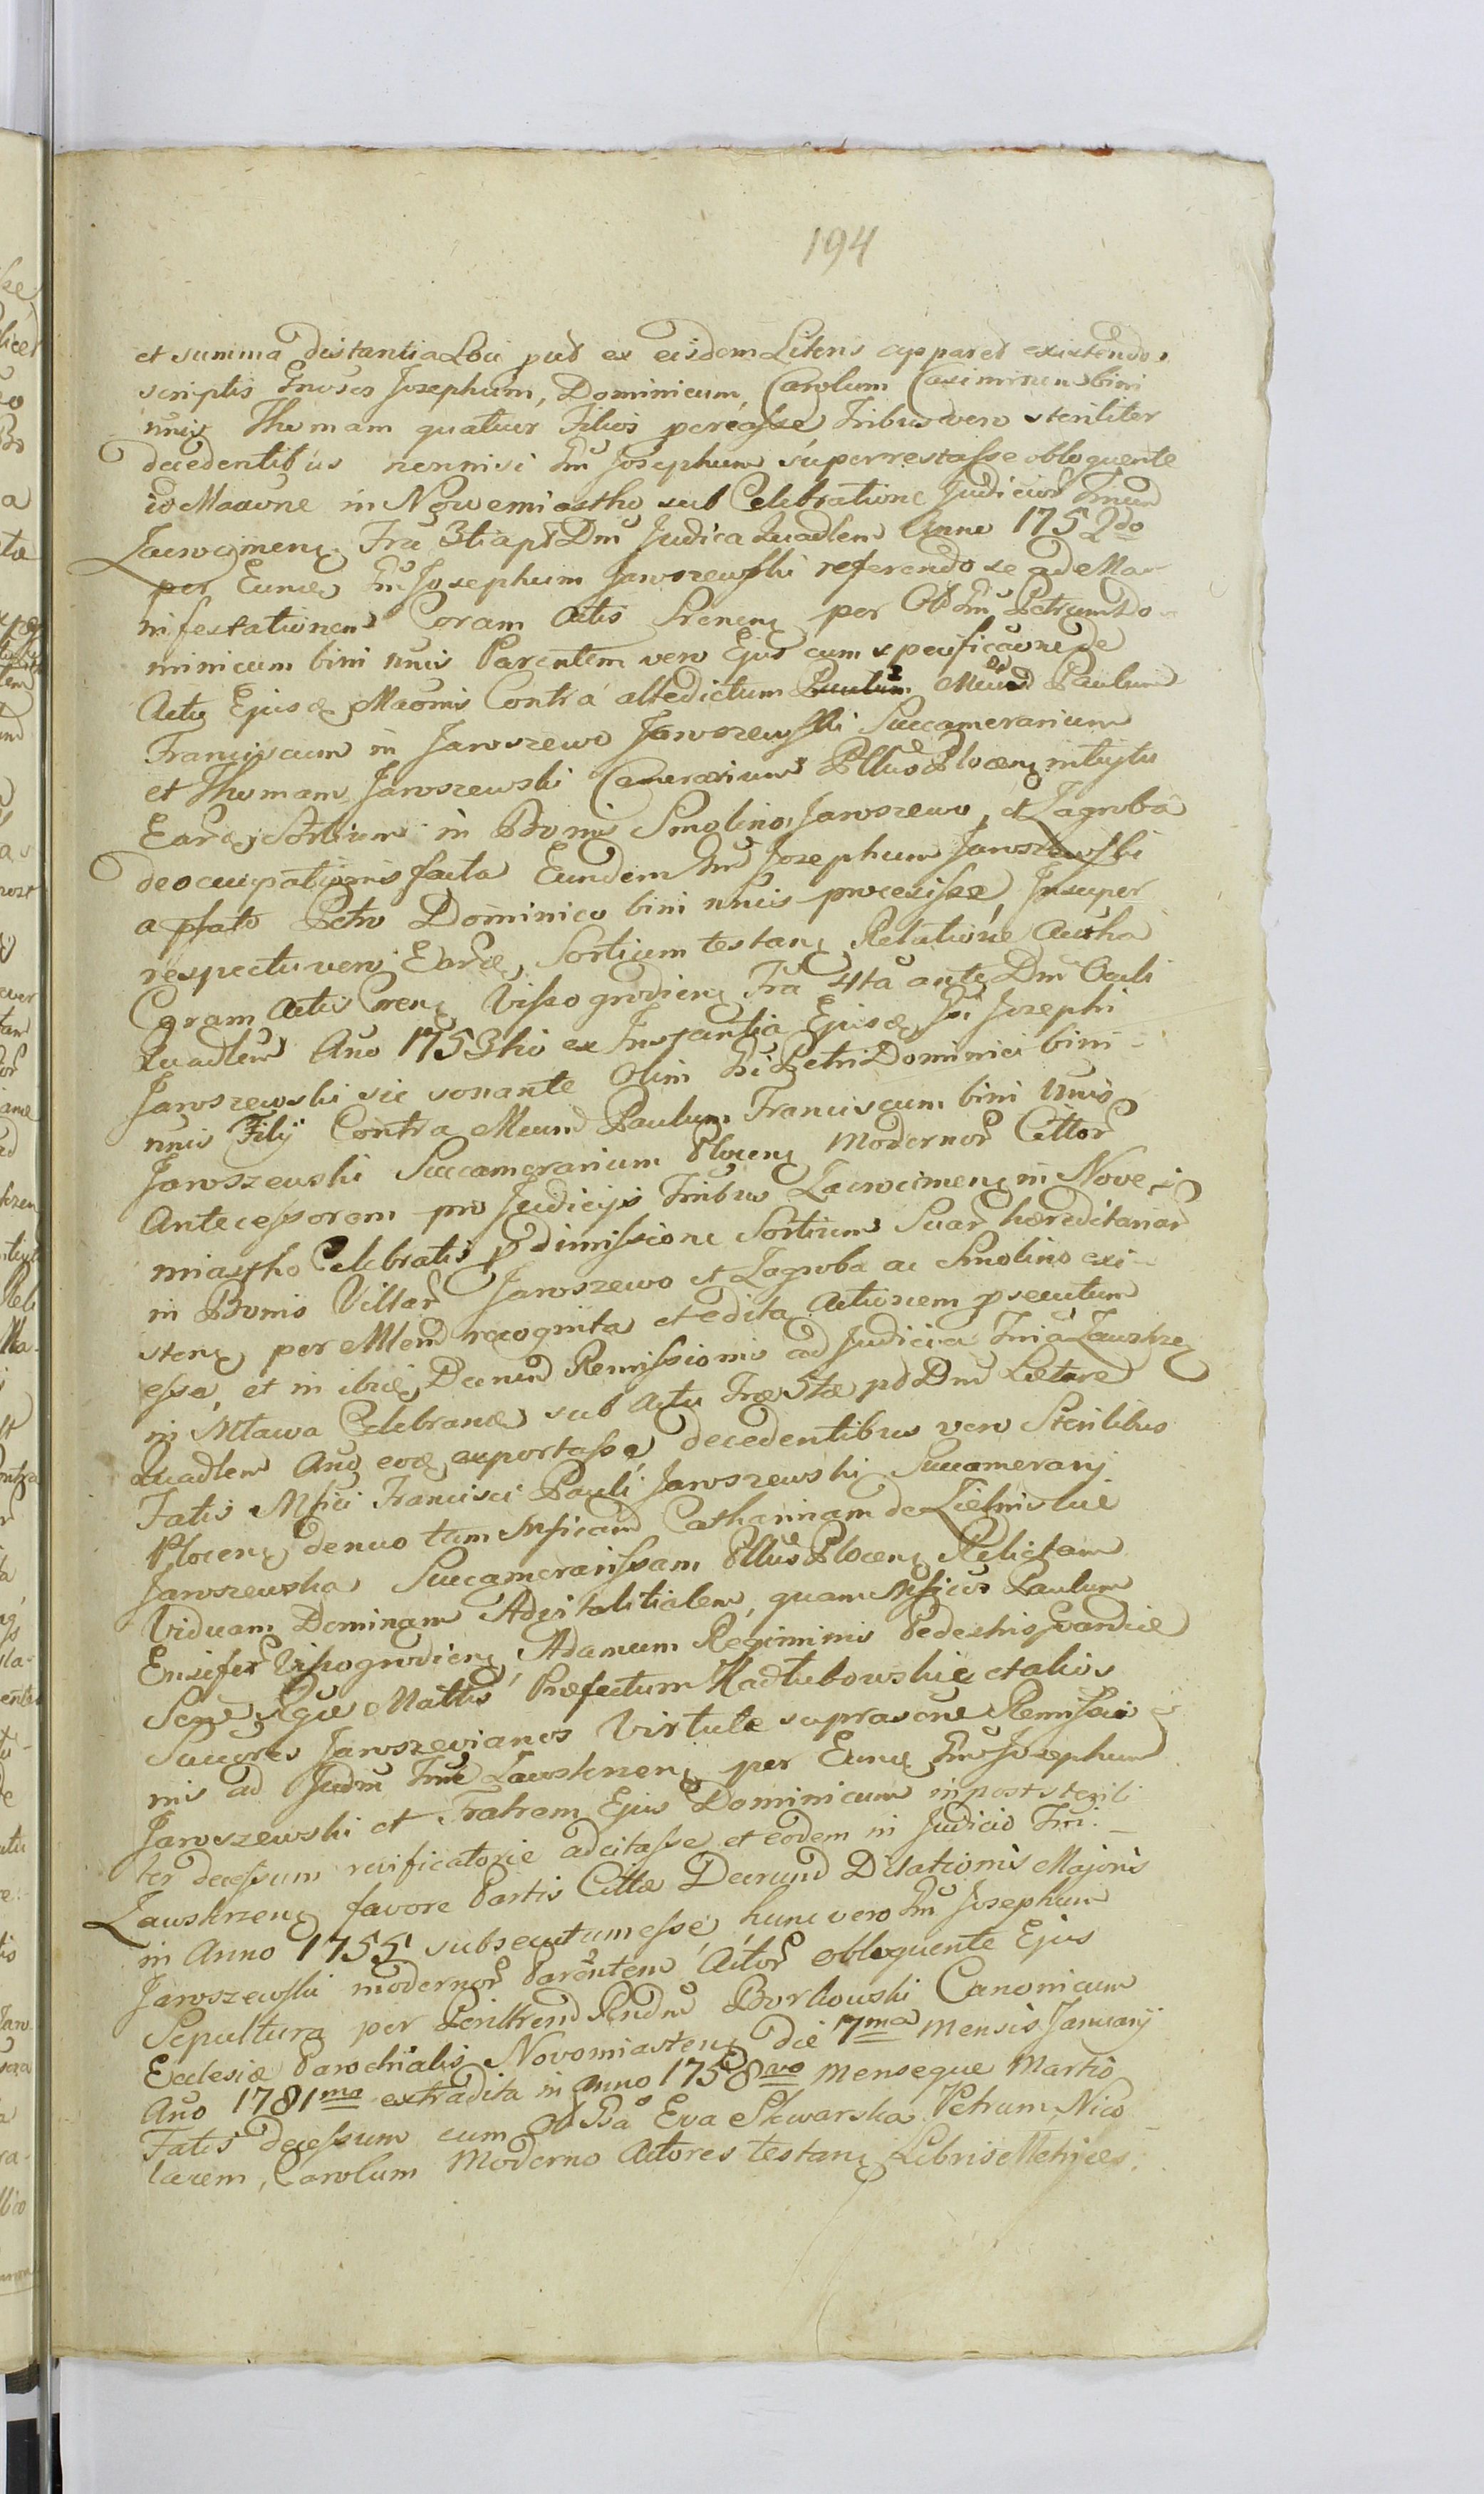 194
et summa distantia Loci put ex eisdem Literis apparet existendo
scriptis Gnosos Josephum, Dominicum, Carolum Casimirum bini
nnis Thomam quatuor Filios peregisse Tribus vero steriliter
decedentibus nonnisi Gm Josephum superrestasse obloquente
in Nowemiastho sub Celebratione Judicior Tmum
Zacrocimens Fra 3tia pt Dm Judica Quadlem Anno 1752do
per Eunde Gm Josephum Jaroszewski referendo se ad Ma-
nifestationem Coram Actis Srenens per Ol Gm Petrum Do-
minicum bini nnis Parentem vero Ejus cum specificaone de
Actu Ejusd Maonis Contra altedictum Paulum Paulum
Franciscum in Jaroszewo Jaroszewski Succamerarium
et Thomam Jaroszewski Camerarium Pllus Plocens intuytu
Eard Sortium in Bonis Smolino, Jaroszewo, et Zagroba
deocupationis facta Eundem Gm Josephum Jaroszewski
a pfato Petro Dominico bini nnis processisse, Insuper
respectu vero Eard, Sortium testans Relatione Actha
Coram Actis Crens Vissogrodiens Fra 4ta ante Dm Oculi
Quadlem Ano 1753tio ex Instantia Ejusd Gsi Josephi
Jaroszewski sic sonante Olim Gsi Petri Dominici bini
nnis Filij Contra Mcum Paulum Franciscum bini nnis
Jaroszewski Succamerarium Plocens Modernor Cittor
Antecessorem pro Judicijs Tribus Zacrocimens in Nove-
miastho Celebratis p dimissione Sortium Suar hæreditariar
in Bonis Villar Jaroszewo et Zagroba ac Smolino exi-
stens per Mlem recognita et edita Actionem psecutum
esse, et in ibid Decrum Remissionis ad Judicia Tria Zawskrz
in Mlawa Celebrand sub Actu Fræ 5tæ pt Dm Lætare
Quadlem Ano eod exportasse, decedentibus vero Sterilibus
Fatis Mfici Francisci Pauli Jaroszewski Succamerarij
Plocens denuo tam Mficam Catharinam de Zielinskie
Jaroszewska Succamerarissam Pllus Plocens Relictam
Viduam Dominam Advitalitialem, quam Mficos Paulum
Ensifer Vissogrodiens, Adamum Regiminis Pedestris Gvardiæ
Sræ Rgiæ Mattis Præfectum Kadlubowskie et alios
Succres Jaroszewianos Virtute suprascne Remissio-
nis ad Judm Tme Zawskrzens per Eund Gm Josephum
Jaroszewski et Fratrem Ejus Dominicum in post sterili
ter decessum reificatorie adcitasse et eodem in Judicio Tri.
Zawskrzens favore Partis Cittæ Decrum Dilationis Majoris
in Anno 1755 subsecutum esse, hunc vero Gm Josephum
Jaroszewski modernor Parentem Actor obloquente Ejus
Sepultura per Perillrem Rndm Borkowski Canonicum
Ecclesiæ Parochialis Novomiastens die 7ma mensis January
Ano 1781mo extradita in Anno 1758vo menseque Martio
Fatis decessum cum Ol Gsa Eva Skwarska Petrum, Nico
laum, Carolum Moderno Actores testans Libris Metrices.